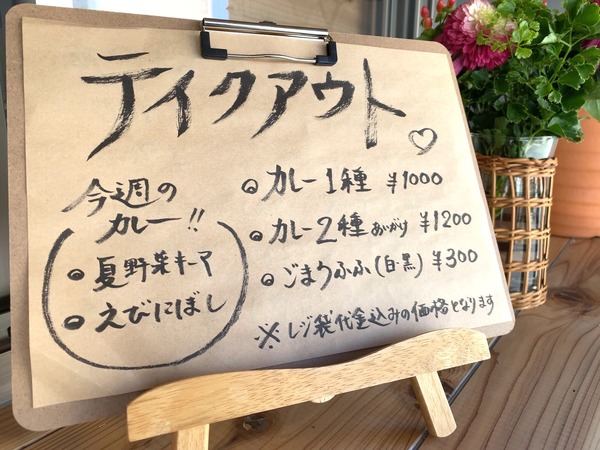 テイクアウト♡
今週の
カレー!!
・夏野菜キーマ
・えびにぼし
・カレー1種 ¥1000
・カレー2種 あいがけ ¥1200
・ごまクふふ(白・黒) ¥300
※レジ袋代金込みの価格となります